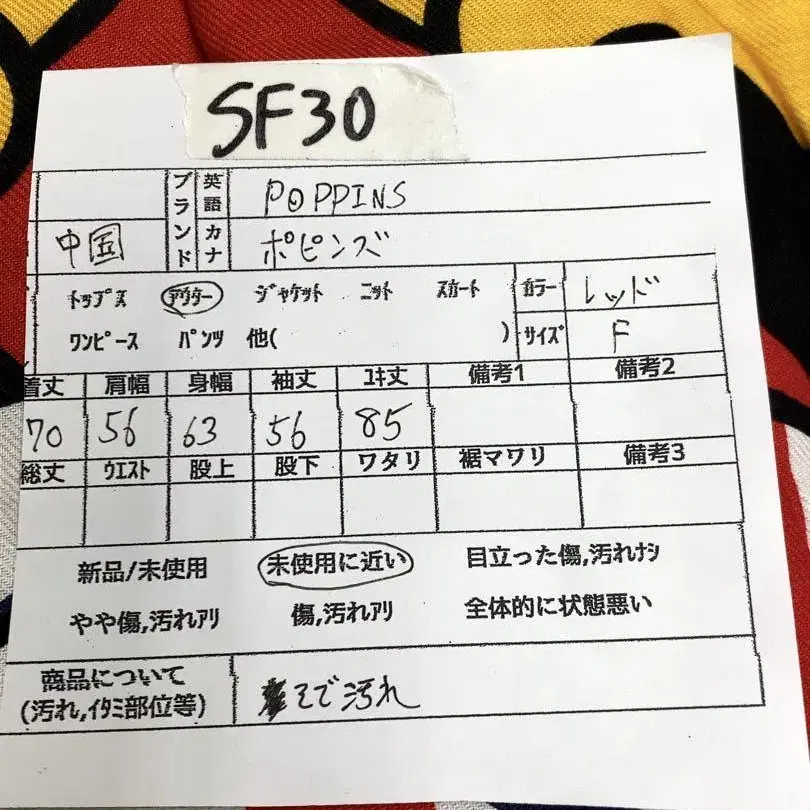 SF30
ブランド 英語 POPPINS
中国 カナ ポピンズ
トップス アウター ジャケット ニット スカート カラー レッド
ワンピース パンツ 他( ) サイズ F
着丈 肩幅 身幅 袖丈 ユキ丈 備考1 備考2
70 56 63 56 85
総丈 ウエスト 股上 股下 ワタリ 裾マワリ 備考3
新品/未使用 未使用に近い 目立った傷,汚れナシ
やや傷,汚れアリ 傷,汚れアリ 全体的に状態悪い
商品について
(汚れ,イタミ部位等) そで汚れ